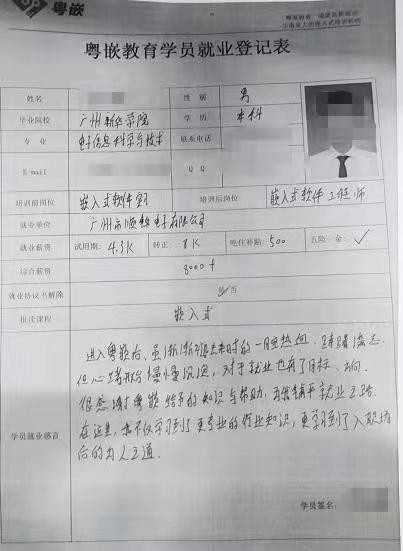 粤嵌
粤嵌教育学员就业登记表
姓名 性别 男
毕业院校 广州新华学院 学历 本科
专业 电子信息科学与技术 联系电话
E-mail QQ
培训前岗位 嵌入式软件实习 培训后岗位 嵌入式软件工程师
就业单位 广州市顺 电子有限公司
就业薪资 试用期: 4.3K 转正 8K 吃住补贴: 500 五险一金: ✓
综合薪资 8000+
就业协议书解除 是/否
报读课程 嵌入式
进入粤嵌后, 虽渐渐褪去来时的一腔热血、踌躇满志.
但心态却慢慢沉淀, 对于就业也有了目标、方向.
很感谢粤嵌给予的知识与帮助, 为我铺平就业之路.
在这里, 我不仅学习到了更专业的作业知识, 更学习到了入职场
后的为人之道.
学员就业感言
学员签名: